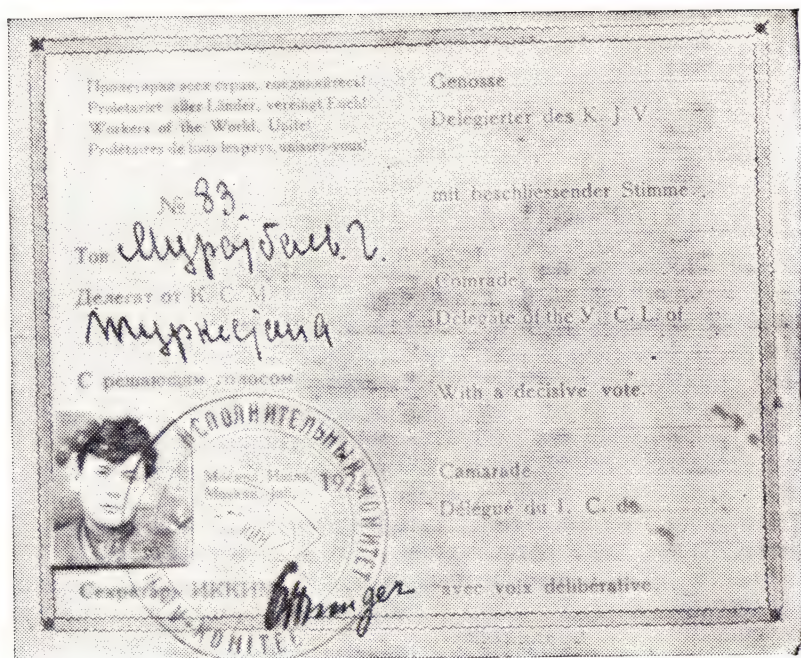 Пролетарии всех стран, соединяйтесь!
Proletarier aller Länder, vereinigt Euch!
Workers of the World, Unite!
Prolétaires de tous les pays, unissez-vous!
№ 83
Тов
Делегат от К. С. М.
С решающим голосом
ИСПОЛНИТЕЛЬНЫЙ КОМИТЕТ
Москва, Июль, 192
Москau, Juli,
КИМ
Секретарь ИККИМ
Genosse
Delegierter des K. J. V.
mit beschliessender Stimme.
Comrade
Delegate of the Y. C. L. of
With a decisive vote.
Camarade
Délégué du J. C. de
avec voix délibérative.